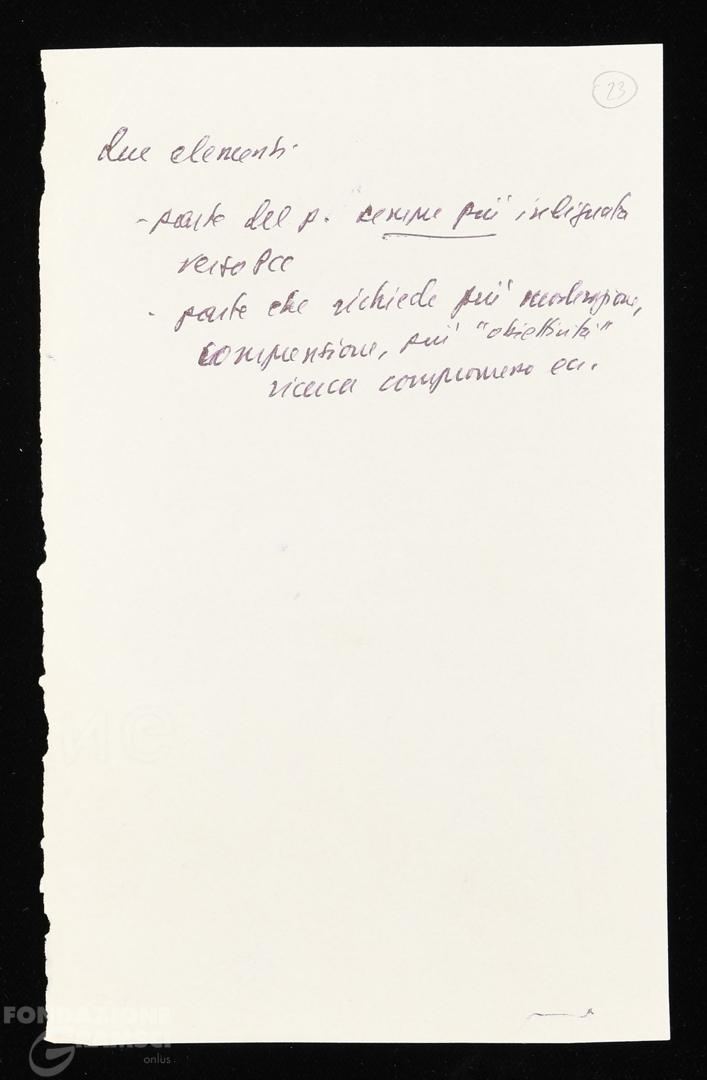 23
due elementi
- parte del p. sempre più indignata
verso Pcc
- parte che richiede più moderazione,
comprensione, più "obiettività"
ricerca compromesso ecc.
FONDAZIONE
GRAMSCI
onlus